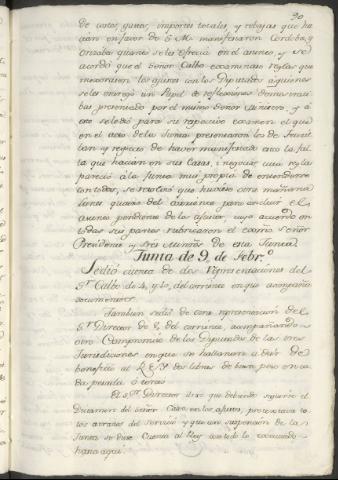 90
de costas, gastos, importes totales, y rebajas que ha
cian en favor de S. M. manifestaron Cordoba, y
Orizaba quanto se les ofrecia en el asunto, y se
acordó que el Señor Calbo examinase reglas que
mejorasen los ajustes con los Diputados a quienes
se les entregó un Papel de reflexiones demostrati
bas presentado por el mismo Señor Ministro, y á
este se le dió para su reposicion examen el que
en el acto de la Junta presentaron los de
y respecto de haver manifestado estos la fal
ta que hacian en sus Casas, i negocios, cuia regla
pareció á la Junta mui propia de entenderse
con todos, se resolvió que huviese otra mañana
Lunes quatro del corriente para concluir el
asunto pendiente de los ajustes, cuyo acuerdo en
todas sus partes rubricaron el exmo. Señor
Presidente y tres Ministros de esta Junta
Junta de 9, de Febr.o
Se dió cuenta de dos Representaciones del
S.r Calbo de 4, y 6, del corriente en que acompaña
documentos
Tambien se dió de otra representacion del
S.r Director de 8, del corriente, acompañando
otro Compromiso de los Diputados de las tres
Jurisdiciones en que se hallanaron a dar de
beneficio al REY dos libras de buen peso en ca
da pesada ó tercio
El S.r Director dixo que debiendo seguirse el
Dictamen del Señor Calbo en los ajustes, protextava to
dos los atrasos del servicio y que con suspension de la
Junta se diese Cuenta al Rey con todo lo executado
hasta aqui.